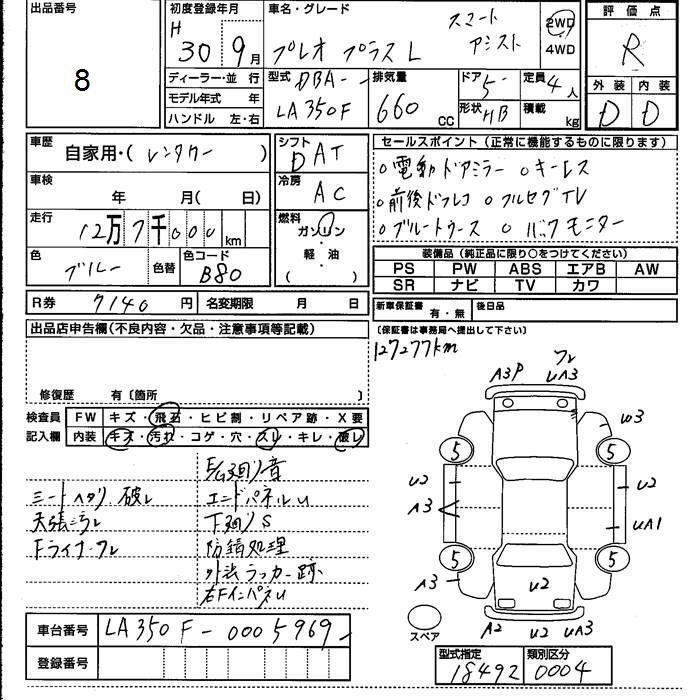 出品番号
8
初度登録年月
H
30 9月
車名・グレード
スマート
プレオ プラス L アシスト
2WD
4WD
評価点
R
外装 内装
D D
ディーラー・並行
モデル年式 年
ハンドル 左・右
型式 DBA-
LA350F
排気量
660 cc
ドア 5
形状 HB
定員 4人
積載 kg
車歴
自家用・(レンタカー)
車検
年 月( 日)
走行
12万7千000 km
色
ブルー
色替
色コード
B80
シフト
DAT
冷房
AC
燃料
ガソリン
・
軽油
( )
セールスポイント(正常に機能するものに限ります)
○電動ドアミラー ○キーレス
○前後ドラレコ ○フルセグTV
○ブルートゥース ○バックモニター
装備品(純正品に限り○をつけてください)
PS PW ABS エアB AW
SR ナビ TV カワ
R券 7140円 名変期限 月 日
新車保証書 有・無 後日品
(保証書は事務局へ提出して下さい)
出品店申告欄(不良内容・欠品・注意事項等記載)
127277km
修復歴 有〔箇所 〕
検査員 FW キズ・飛石・ヒビ割・リペア跡・X要
記入欄 内装 キズ・汚れ・コゲ・穴・スレ・キレ・破レ
E/G廻り音
シートヘタリ 破レ エンドパネルU
天張ヨゴレ 下廻りS
Fライナーワレ 防錆処理
外装ラッカー跡
右FインパネU
A3P ワレ
UA3
U3
5 5
U2 U2
A3 UA1
5 5
A3 U2
スペア
A2 U2 UA3
車台番号 LA350F-0005969
登録番号
型式指定 類別区分
18492 0004